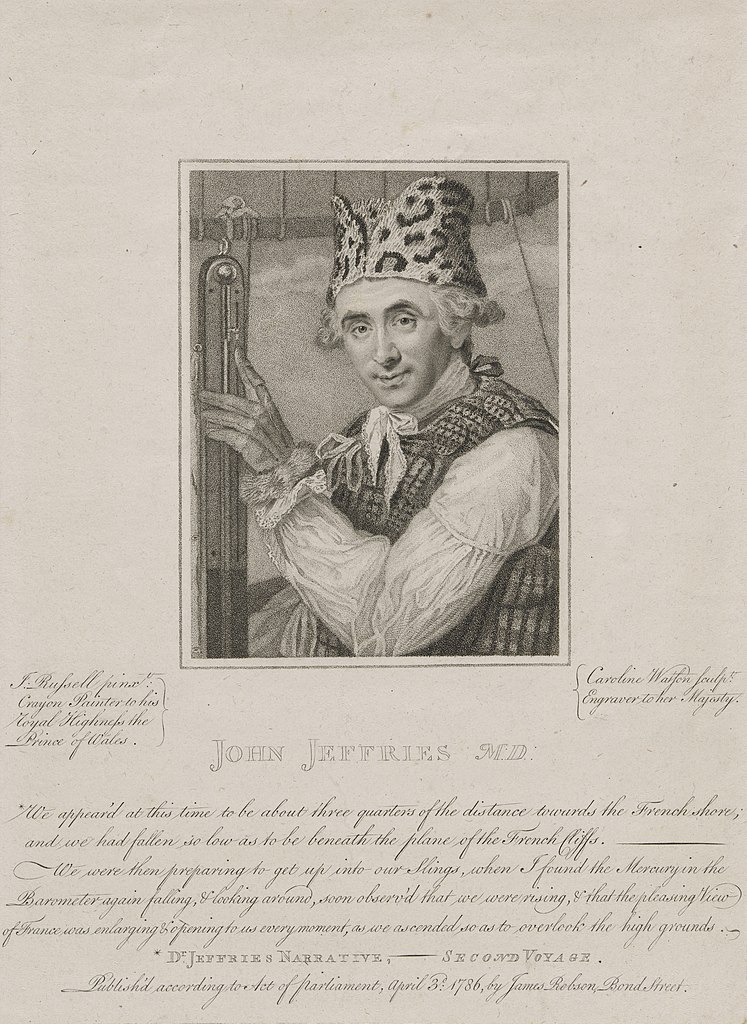 J. Russell pinxt.
Crayon Painter to his
Royal Highness the
Prince of Wales.
Caroline Watson sculpt.
Engraver to her Majesty.
JOHN JEFFRIES M.D.
*We appear'd at this time to be about three quarters of the distance towards the French shore;
and we had fallen so low as to be beneath the plane of the French Cliffs. ———
We were then preparing to get up into our Slings, when I found the Mercury in the
Barometer again falling, & looking around, soon observ'd that we were rising, & that the pleasing View
of France was enlarging & opening to us every moment, as we ascended so as to overlook the high grounds. —
* DR. JEFFRIES NARRATIVE, —— SECOND VOYAGE.
Publish'd according to Act of Parliament, April 3d. 1786, by James Robson, Bond Street.